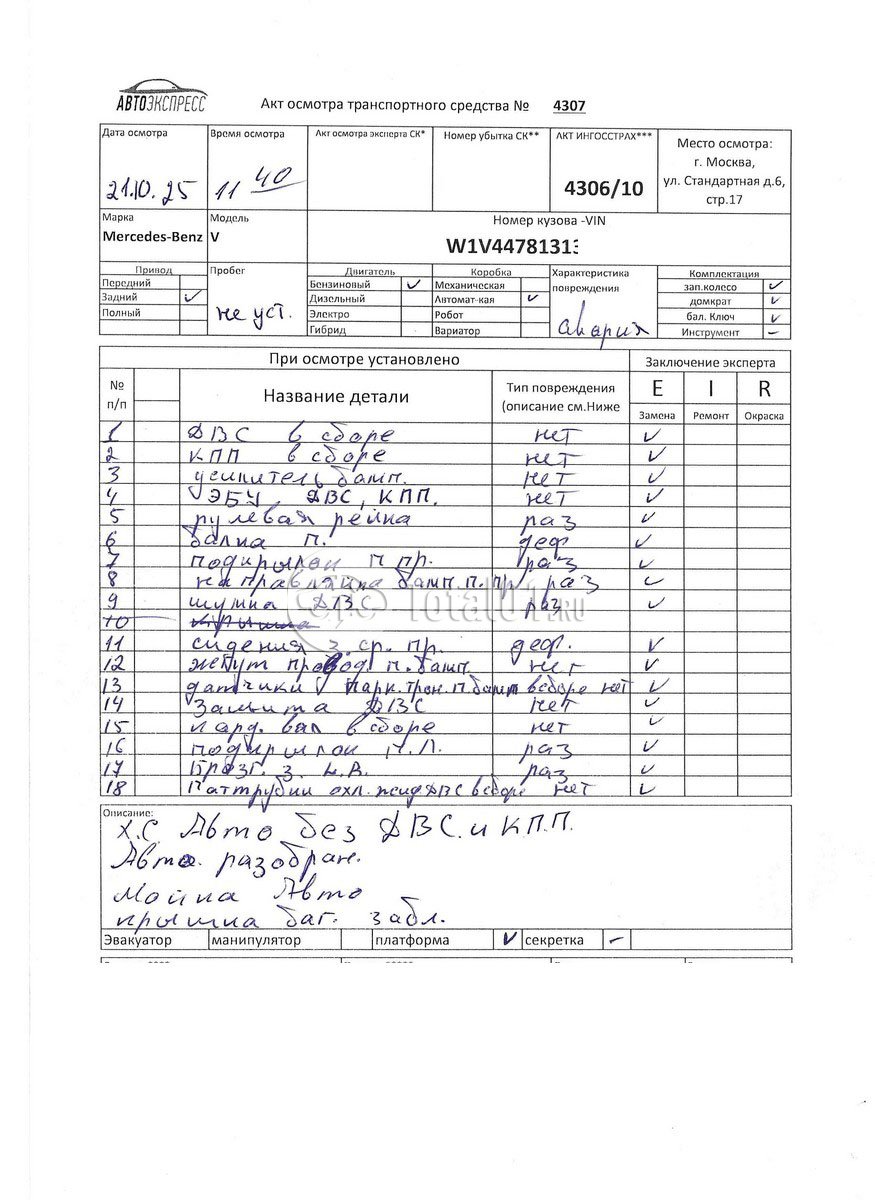 АВТОЭКСПРЕСС
Акт осмотра транспортного средства № 4307
Дата осмотра Время осмотра Акт осмотра эксперта СК* Номер убытка СК** АКТ ИНГОССТРАХ*** Место осмотра:
г. Москва,
ул. Стандартная д.6,
стр.17
21.10.25 11 40 4306/10
Марка Модель Номер кузова -VIN
Mercedes-Benz V W1V44781313
Привод Пробег Двигатель Коробка Характеристика повреждения Комплектация
Передний Бензиновый ✓ Механическая зап.колесо ✓
Задний ✓ не уст. Дизельный Автомат-кая ✓ авария домкрат ✓
Полный Электро Робот бал. Ключ ✓
Гибрид Вариатор Инструмент –
При осмотре установлено Заключение эксперта
№ п/п Название детали Тип повреждения (описание см.Ниже E I R
Замена Ремонт Окраска
1 ДВС в сборе нет ✓
2 КПП в сборе нет ✓
3 усилитель бамп. нет ✓
4 ЭБУ ДВС, КПП. нет ✓
5 рулевая рейка раз ✓
6 балка п. деф ✓
7 подкрылок п пр. раз ✓
8 направляйка бамп. п. пр раз ✓
9 шумка ДВС раз ✓
10 крышка
11 сидения з. ср. пр. деф. ✓
12 жгут провод. п. бамп нет ✓
13 датчики парк.трон. п бамп в сборе нет ✓
14 Защита ДВС нет ✓
15 кард. вал в сборе нет ✓
16 подкрылок п.л. раз ✓
17 Брызг. з. раз ✓
18 Паттрубки охл. жид ДВС в сборе нет ✓
Описание:
Х.С. Авто без ДВС. и К.П.П.
Авто. разобран.
Мойка Авто
крышка баг. забл.
Эвакуатор манипулятор платформа ✓ секретка –
Total01.RU